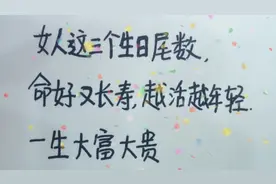 女人这三个生日尾数,
命好又长寿,越活越年轻.
一生大富大贵